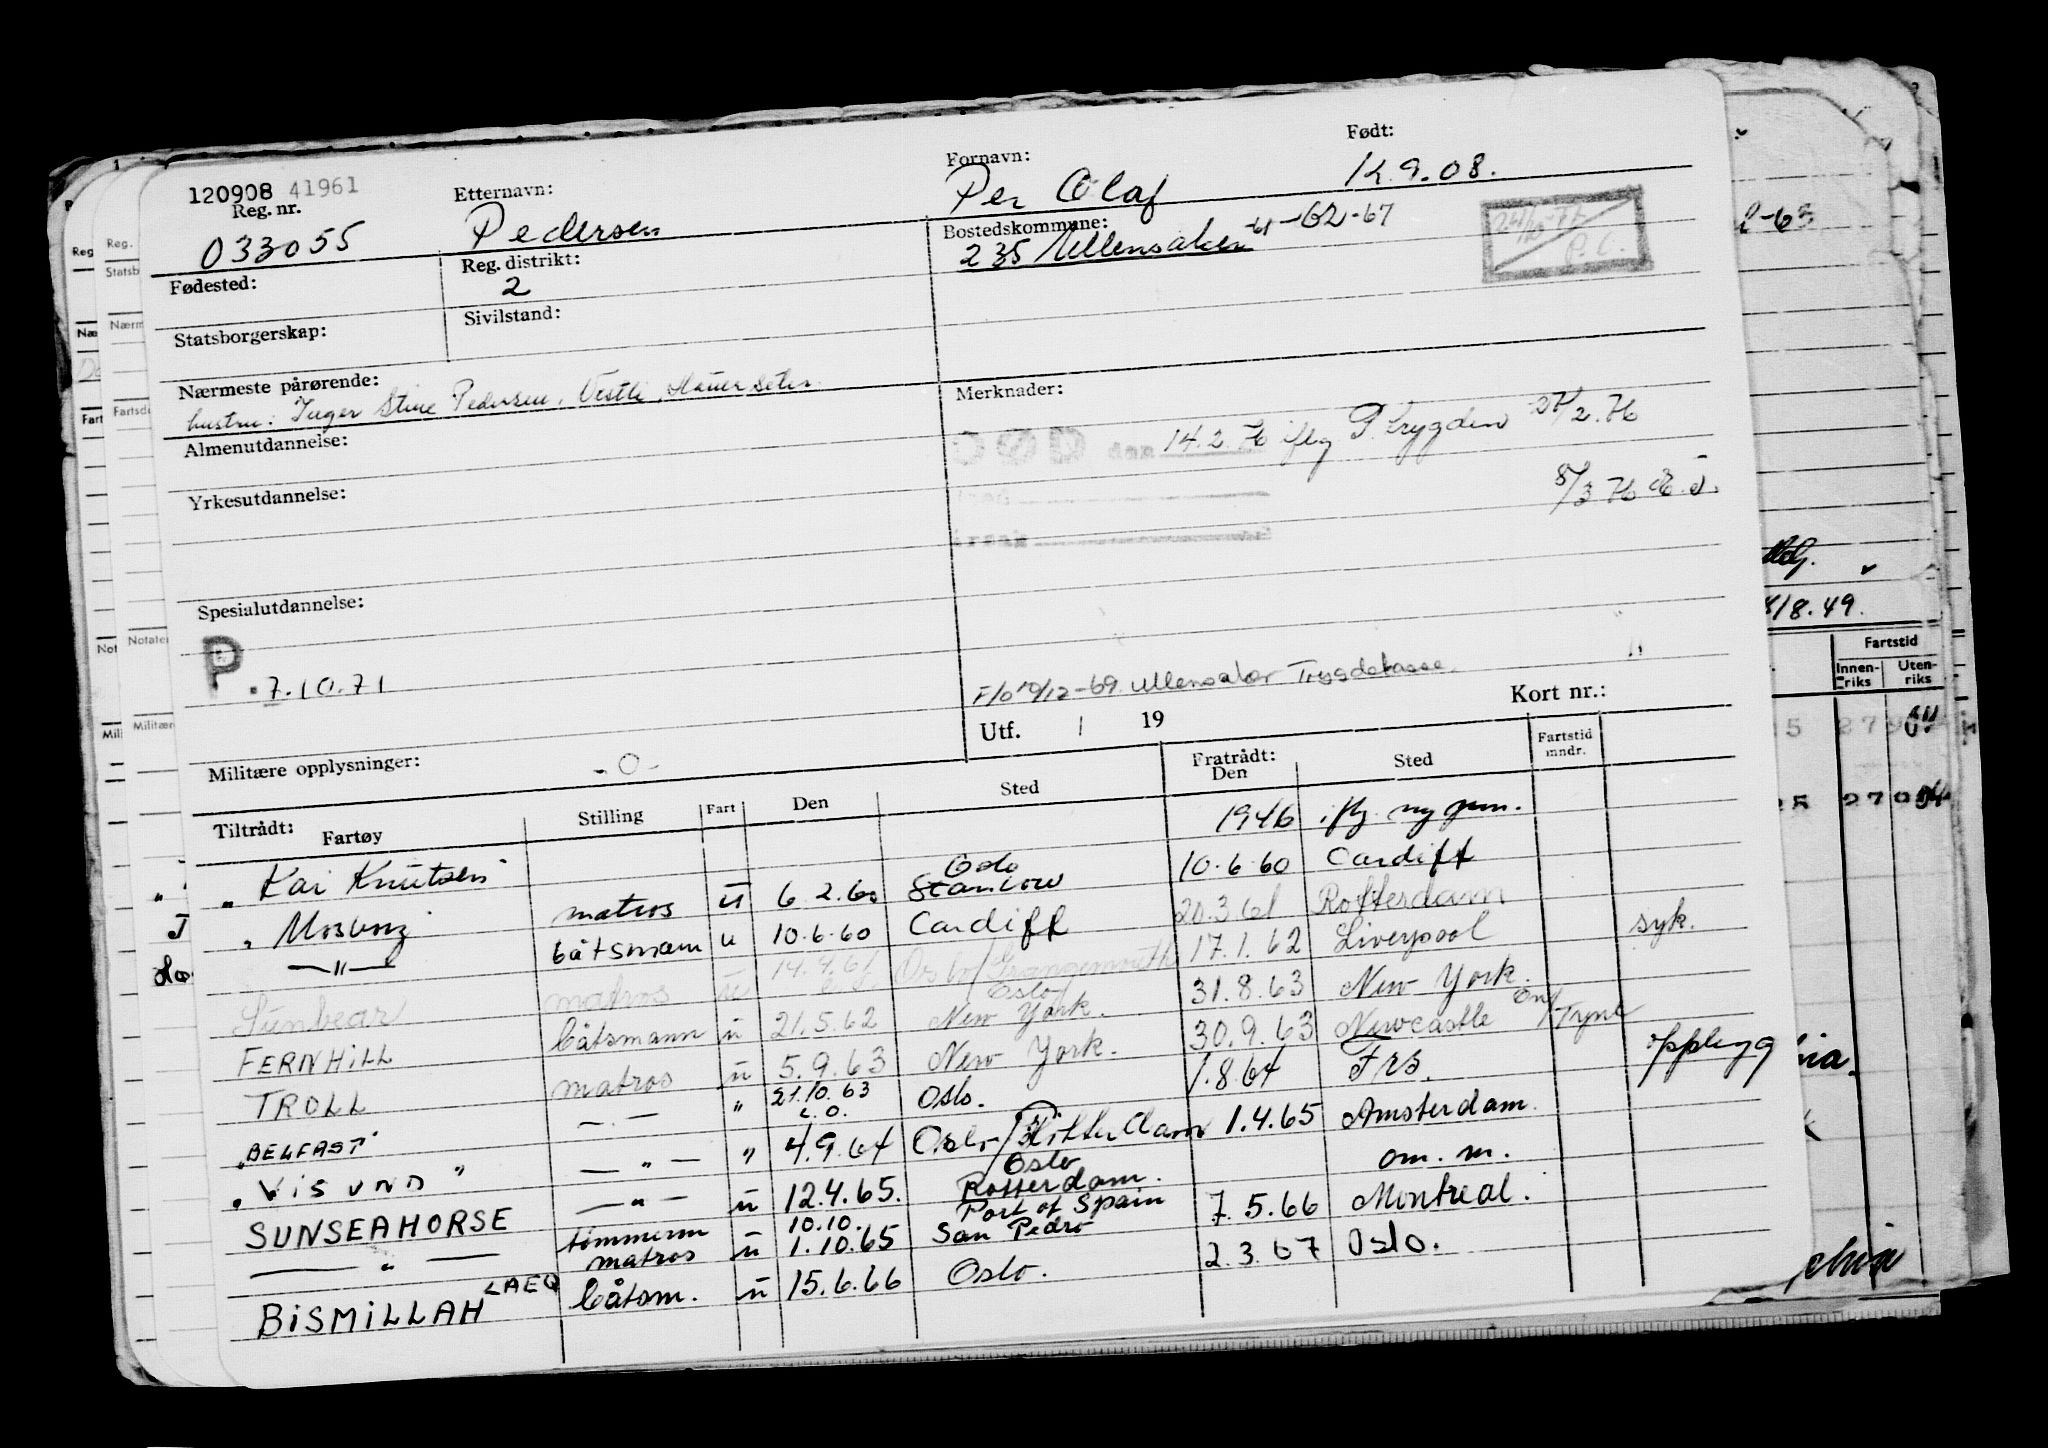 120908 41961
Reg. nr.
033055
Etternavn:
Pedersen
Fornavn:
Per Olaf
Født:
12.9.08.
Fødested:
Reg. distrikt:
2
Bostedskommune:
235 Ullensaker -61-62-67
Statsborgerskap:
Sivilstand:
Nærmeste pårørende:
hustru: Inger Stine Pedersen, Vestli, Hauerseter.
Merknader:
DØD den 14.2.76 iflg P.trygden 27/2.76
8/3 76
årsak
Almenutdannelse:
Yrkesutdannelse:
Spesialutdannelse:
P.
7.10.71
F/o 10/12-69 Ullensaker Trygdekasse.
Utf. / 19
Kort nr.:
Militære opplysninger:
-0-
Tiltrådt: Fartøy Stilling Fart Den Sted Fratrådt: Den Sted Fartstid mndr.
1946 iflg. ny mm.
"Kai Knutsen" matros u 6.2.60 Oslo Stanlow 10.6.60 Cardiff
"Mosborg" båtsmann u 10.6.60 Cardiff 20.3.61 Rotterdam
—"— 17.1.62 Liverpool syk.
Sunbear matros u 14.9.61 Oslo/Grangemouth 31.8.63 New York.
FERNHILL båtsmann u 21.5.62 Oslo/ New York. 30.9.63 Newcastle on/Tyne
TROLL matros u 5.9.63 New York. 1.8.64 Frs. opplegg
"BELFAST" —.— " 21.10.63 Oslo. 1.4.65 Amsterdam.
"VISUND" —"— " 4.9.64 Oslo/Rotterdam om. m.
SUNSEAHORSE —"— u 12.4.65. Oslo Rotterdam. 7.5.66 Montreal.
—"— tømmerm matros u 10.10. 1.10.65 Port of Spain San Pedro 2.3.67 Oslo.
BISMILLAH LAEQ båtsm. u 15.6.66 Oslo.
8/8.49.
Fartstid
Innenriks
Utenriks